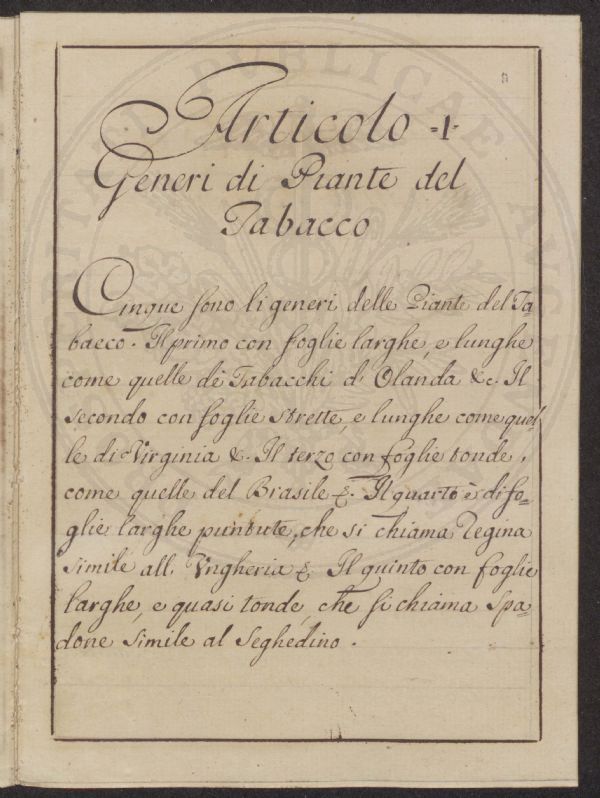 Articolo 1
Generi di Piante del
Tabacco
Cinque sono li generi delle Piante del Ta-
bacco. Il primo con foglie larghe, e lunghe
come quelle de Tabacchi d'Olanda &c. Il
secondo con foglie strette, e lunghe come quel-
le di Virginia &. Il terzo con foglie tonde,
come quelle del Brasile &. Il quarto è di fo-
glie larghe puntute, che si chiama Regina
simile all' Vngheria &. Il quinto con foglie
larghe, e quasi tonde, che si chiama Spa-
done simile al Seghedino.